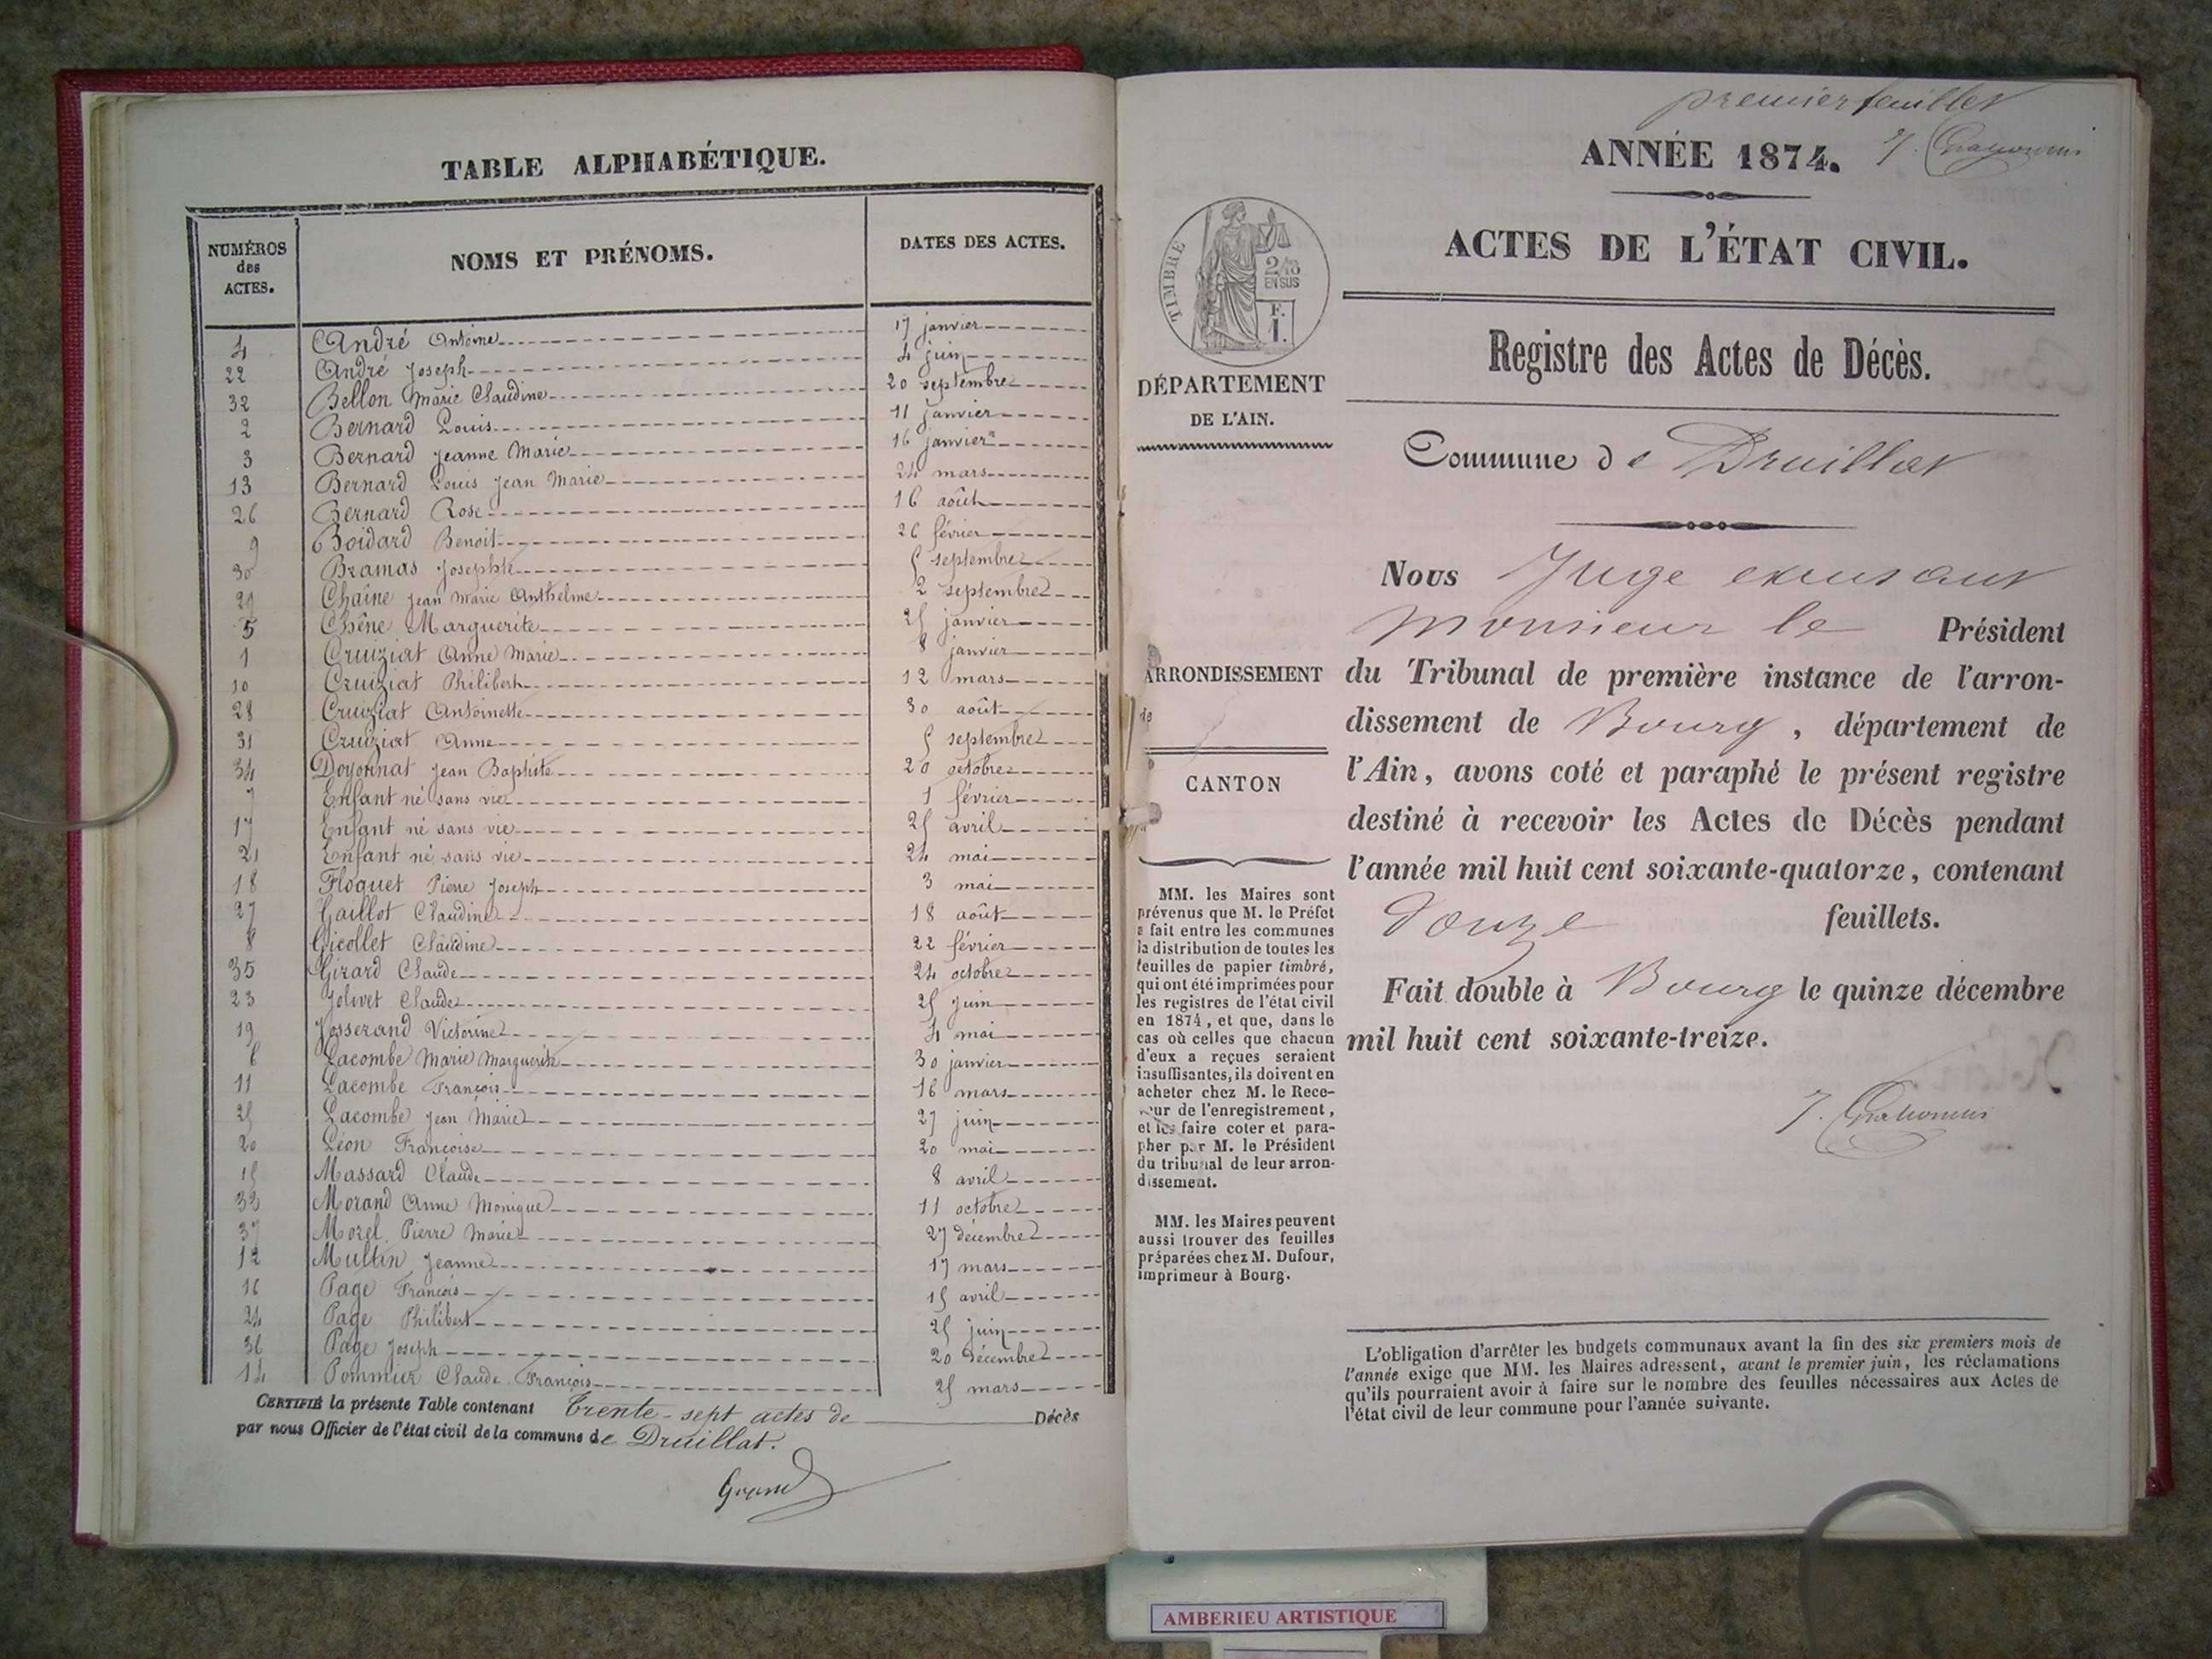 TABLE ALPHABÉTIQUE.
NUMÉROS des ACTES. NOMS ET PRÉNOMS. DATES DES ACTES.
4 André Antoine 17 janvier
22 André Joseph 4 juin
32 Bellon Marie Claudine 20 septembre
2 Bernard Louis 11 janvier
3 Bernard Jeanne Marie 16 janvier
13 Bernard Louis Jean Marie 24 mars
26 Bernard Rose 16 août
9 Boidard Benoit 26 février
30 Bramas Josephte 5 septembre
29 Chaîne Jean Marie Anthelme 2 septembre
5 Chêne Marguerite 25 janvier
1 Cruiziat Anne Marie 8 janvier
10 Cruiziat Philibert 12 mars
28 Cruiziat Antoinette 30 août
31 Cruiziat Anne 5 septembre
34 Doyonnat Jean Baptiste 20 octobre
7 Enfant né sans vie 1 février
17 Enfant né sans vie 25 avril
21 Enfant né sans vie 24 mai
18 Floquet Pierre Joseph 3 mai
27 Gaillot Claudine 18 août
8 Gicollet Claudine 22 février
35 Girard Claude 24 octobre
23 Jolivet Claude 25 juin
19 Josserand Victorine 4 mai
6 Lacombe Marie Marguerite 30 janvier
11 Lacombe François 16 mars
25 Lacombe Jean Marie 27 juin
20 Léon Françoise 20 mai
15 Massard Claude 8 avril
33 Morand Anne Monique 11 octobre
37 Morel Pierre Marie 27 décembre
12 Multin Jeanne 17 mars
16 Page François 15 avril
24 Page Philibert 25 juin
36 Page Joseph 20 décembre
14 Pommier Claude François 25 mars
CERTIFIÉ la présente Table contenant Trente-sept actes de Décès
par nous Officier de l'état civil de la commune de Druillat.
premier feuillet
ANNÉE 1874.
ACTES DE L'ÉTAT CIVIL.
TIMBRE
2/10
EN SUS
F.
1.
DÉPARTEMENT
DE L'AIN.
Registre des Actes de Décès.
Commune de Druillat
Nous Juge
Monsieur le Président
du Tribunal de première instance de l'arron-
dissement de Bourg, département de
l'Ain, avons coté et paraphé le présent registre
destiné à recevoir les Actes de Décès pendant
l'année mil huit cent soixante-quatorze, contenant
douze feuillets.
Fait double à Bourg le quinze décembre
mil huit cent soixante-treize.
ARRONDISSEMENT
de
CANTON
MM. les Maires sont
prévenus que M. le Préfet
a fait entre les communes
la distribution de toutes les
feuilles de papier timbré,
qui ont été imprimées pour
les registres de l'état civil
en 1874, et que, dans le
cas où celles que chacun
d'eux a reçues seraient
insuffisantes, ils doivent en
acheter chez M. le Rece-
veur de l'enregistrement,
et les faire coter et para-
pher par M. le Président
du tribunal de leur arron-
dissement.
MM. les Maires peuvent
aussi trouver des feuilles
préparées chez M. Dufour,
imprimeur à Bourg.
L'obligation d'arrêter les budgets communaux avant la fin des six premiers mois de
l'année exige que MM. les Maires adressent, avant le premier juin, les réclamations
qu'ils pourraient avoir à faire sur le nombre des feuilles nécessaires aux Actes de
l'état civil de leur commune pour l'année suivante.
AMBERIEU ARTISTIQUE